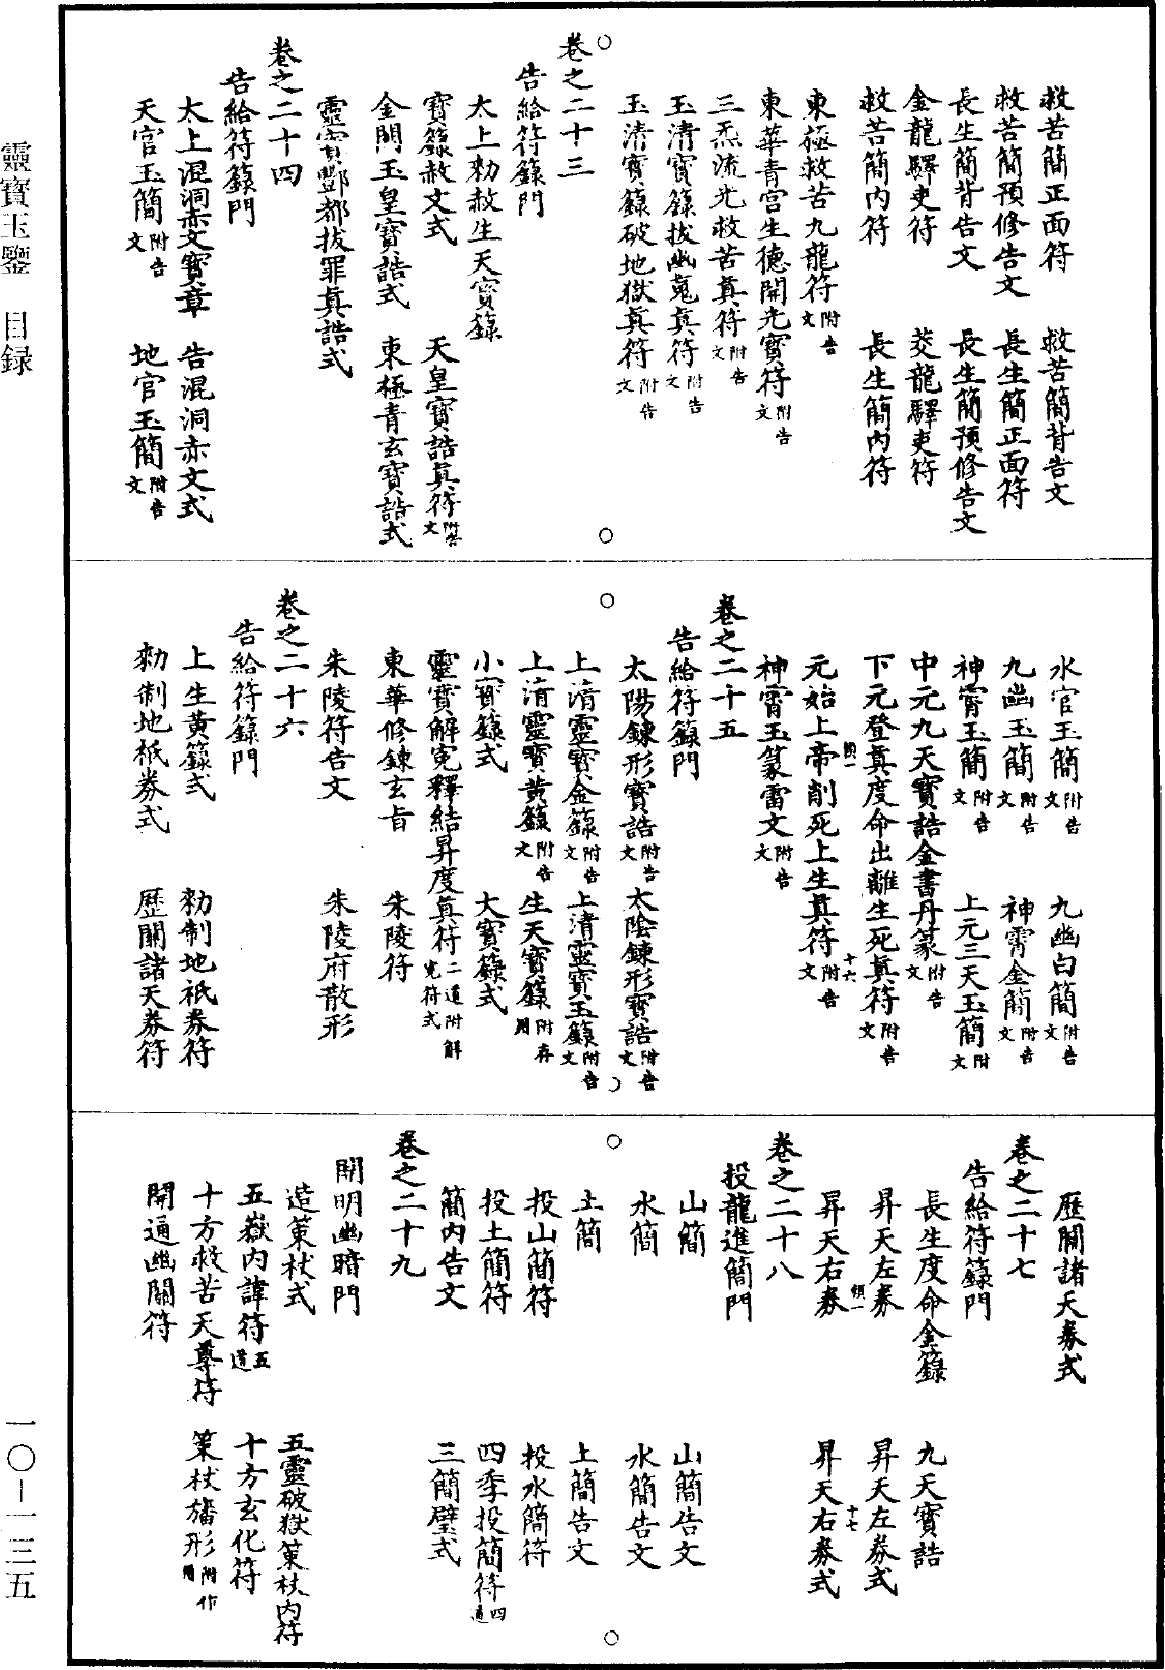 救苦簡正面符　救苦簡背告文
救苦簡預修告文　長生簡正面符
長生簡背告文　長生簡預修告文
金龍驛吏符　茭龍驛吏符
救苦簡內符　長生簡內符
東極救苦九龍符附告文
東華青宮生德開光寶符附告文
三炁流光救苦真符附告文
玉清寶籙拔幽蒐真符附告文
玉清寶籙破地獄真符附告文
卷之二十三
告給符籙門
太上勑赦生天寶籙
寶籙赦文式　天皇寶誥真符附告文
金闕玉皇寶誥式　東極青玄寶誥式
靈寶酆都拔罪真誥式
卷之二十四
告給符籙門
太上混洞赤文寶章　告混洞赤文式
天官玉簡附告文　地官玉簡附告文
水官玉簡附告文　九幽白簡附告文
九幽玉簡附告文　神霄金簡附告文
神霄玉簡附告文　上元三天玉簡附文
中元九天寶誥金書丹篆附告文
下元登真度命出離生死真符附告文
領一　十六
元始上帝削死上生真符附告文
神霄玉篆雷文附告文
卷之二十五
告給符籙門
太陽鍊形寶誥附告文　太陰鍊形寶誥附告文
上清靈寶金籙附告文　上清靈寶玉籙附告文
上清靈寶黃籙附告文　生天寶籙附存用
小寶籙式　大寶籙式
靈寶解冤釋結昇度真符二道附解冤符式
東華修鍊玄旨　朱陵符
朱陵符告文　朱陵府散形
卷之二十六
告給符籙門
上生黃籙式　勑制地祇券符
勑制地祇券式　歷關諸天券符
歷關諸天券式
卷之二十七
告給符籙門
長生度命金籙　九天寶誥
昇天左券　昇天左券式
領一　十七
昇天右券　昇天右券式
卷之二十八
投龍進簡門
山簡　山簡告文
水簡　水簡告文
土簡　上簡告文
投山簡符　投水簡符
投土簡符　四季投簡符四道
簡內告文　三簡璧式
卷之二十九
開明幽暗門
造策杖式　五靈破獄策杖內符
五嶽內諱符五道　十方玄化符
十方救苦天尊符　策杖旛形附作用
開通幽關符
靈寶玉鑒　目録
一〇－一三五